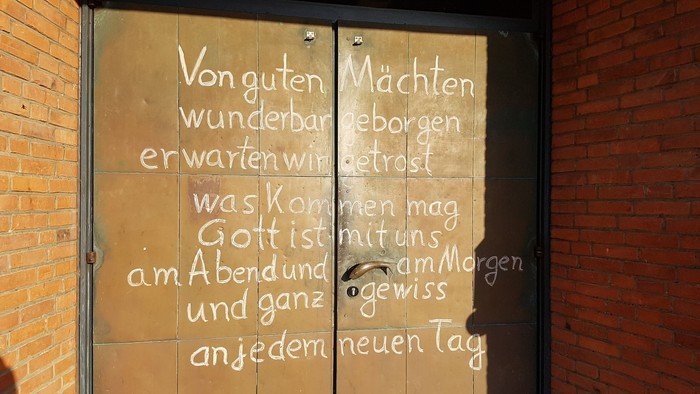 Von guten Mächten
wunderbar geborgen
erwarten wir getrost
was Kommen mag
Gott ist mit uns
am Abend und am Morgen
und ganz gewiss
an jedem neuen Tag